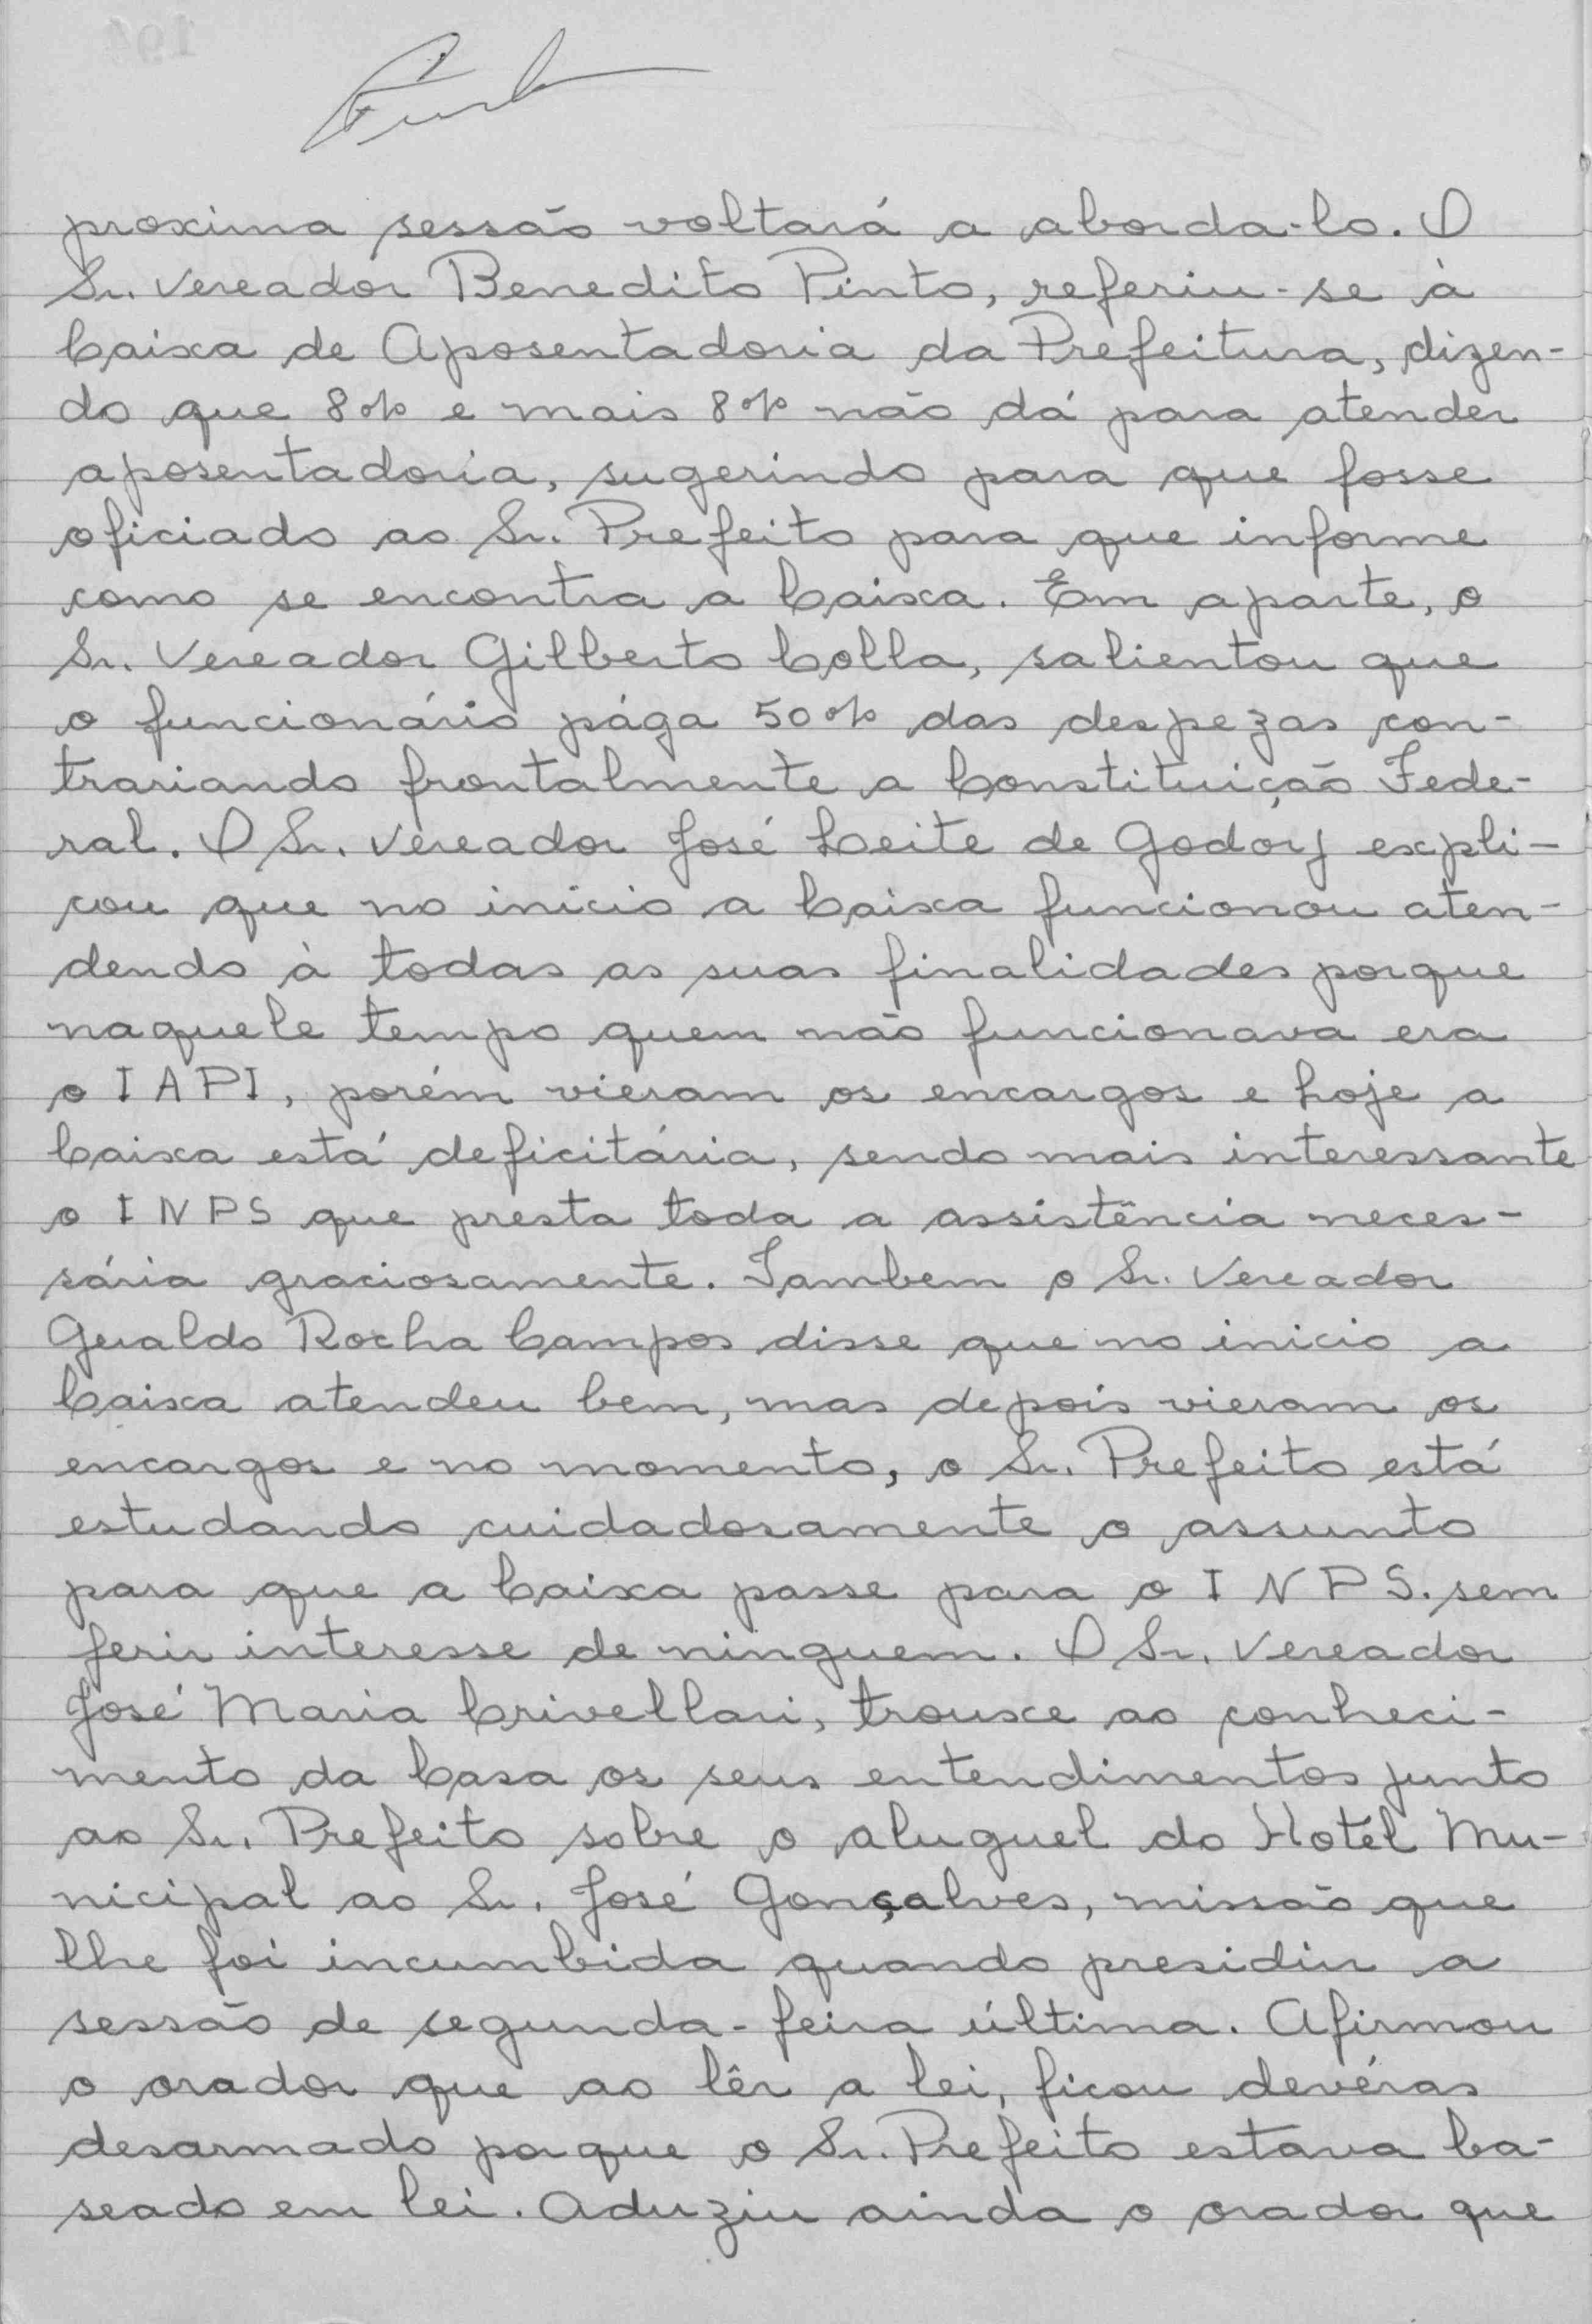 proxima sessão voltará a aborda-lo. O
Sr. Vereador Benedito Pinto, referiu-se à
Caixa de Aposentadoria da Prefeitura, dizen-
do que 8% e mais 8% não dá para atender
aposentadoria, sugerindo para que fosse
oficiado ao Sr. Prefeito para que informe
como se encontra a Caixa. Em aparte, o
Sr. Vereador Gilberto Colla, salientou que
o funcionário pága 50% das despezas con-
trariando frontalmente a Constituição Fede-
ral. O Sr. Vereador José Leite de Godoy expli-
cou que no inicio a Caixa funcionou aten-
dendo à todas as suas finalidades porque
naquele tempo quem não funcionava era
o IAPI, porém vieram os encargos e hoje a
Caixa está deficitária, sendo mais interessante
o INPS que presta toda a assistência neces-
sária graciosamente. Tambem o Sr. Vereador
Geraldo Rocha Campos disse que no inicio a
Caixa atendeu bem, mas depois vieram os
encargos e no momento, o Sr. Prefeito está
estudando cuidadosamente o assunto
para que a Caixa passe para o INPS. sem
ferir interesse de ninguem. O Sr. Vereador
José Maria Crivellari, trouxe ao conheci-
mento da Casa os seus entendimentos junto
ao Sr. Prefeito sobre o aluguel do Hotél Mu-
nicipal ao Sr. José Gonçalves, missão que
lhe foi incumbida quando presidiu a
sessão de segunda-feira última. Afirmou
o orador que ao lêr a lei, ficou devéras
desarmado porque o Sr. Prefeito estava ba-
seado em lei. Aduziu ainda o orador que